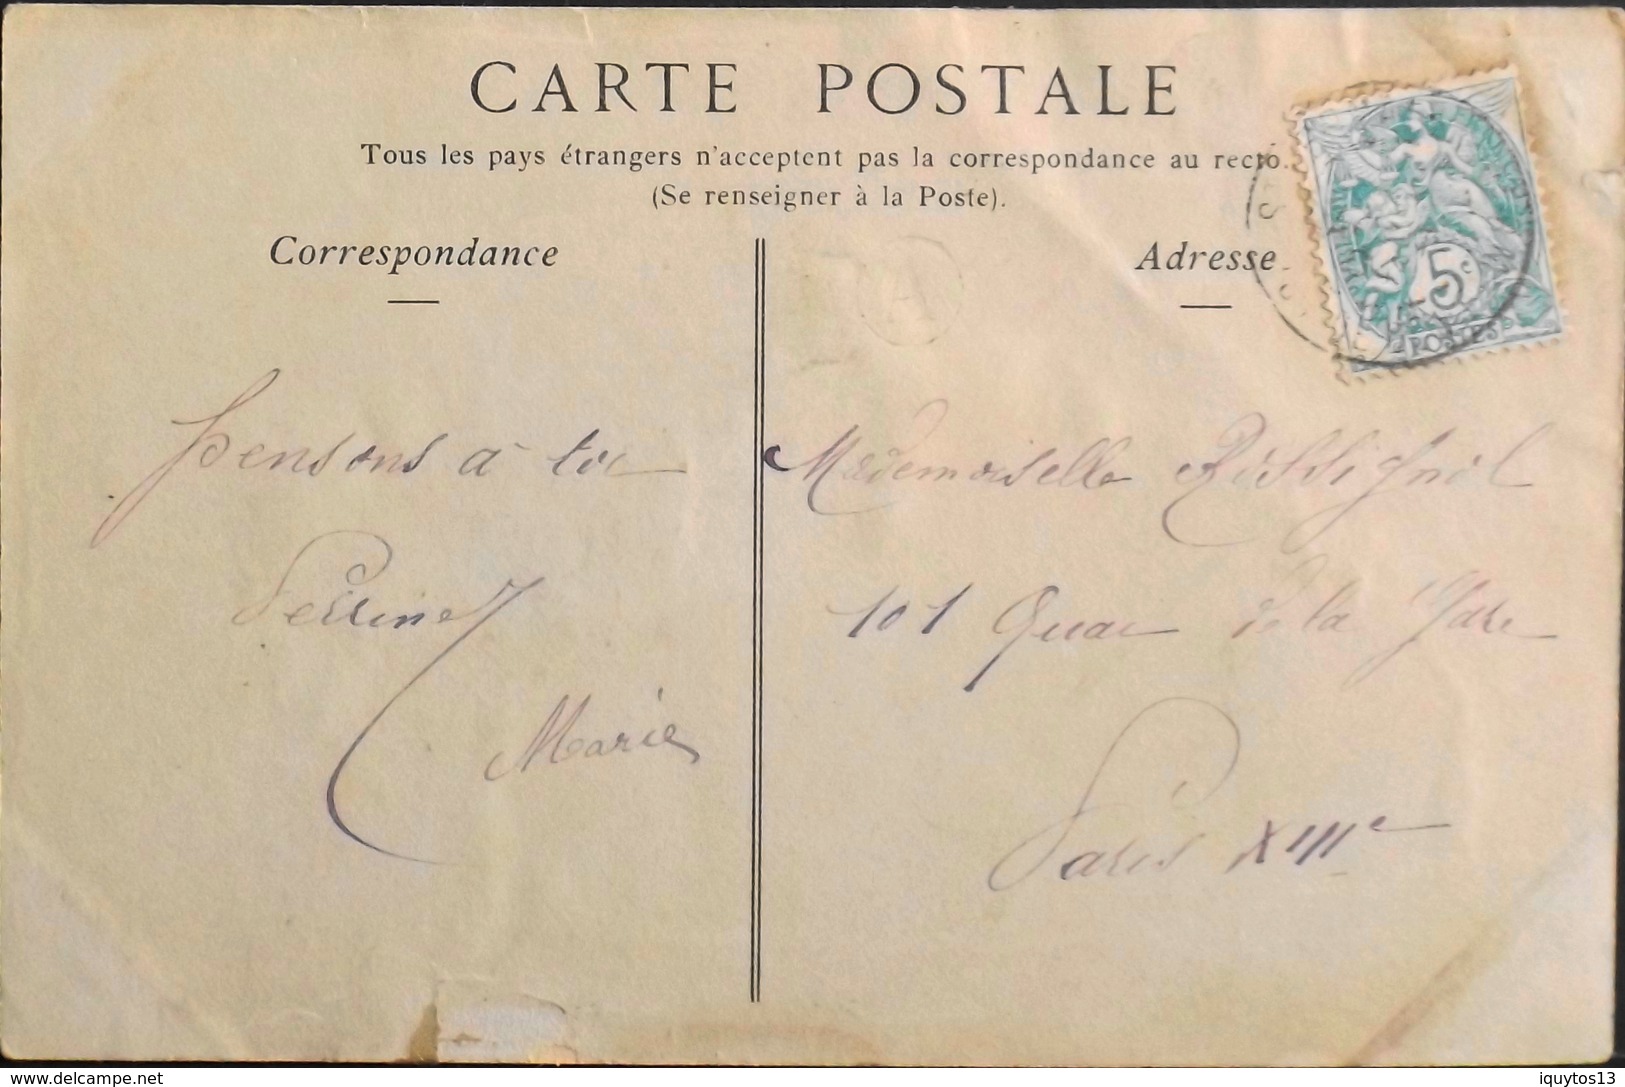 CARTE POSTALE
Tous les pays étrangers n'acceptent pas la correspondance au recto.
(Se renseigner à la Poste).
Correspondance
pensons à toi
Perrine
Marie
Adresse
5c
POSTES
A
Mademoiselle Rossignol
101 Quai de la Gare
Paris XIIIe
www.delcampe.net
iquytos13